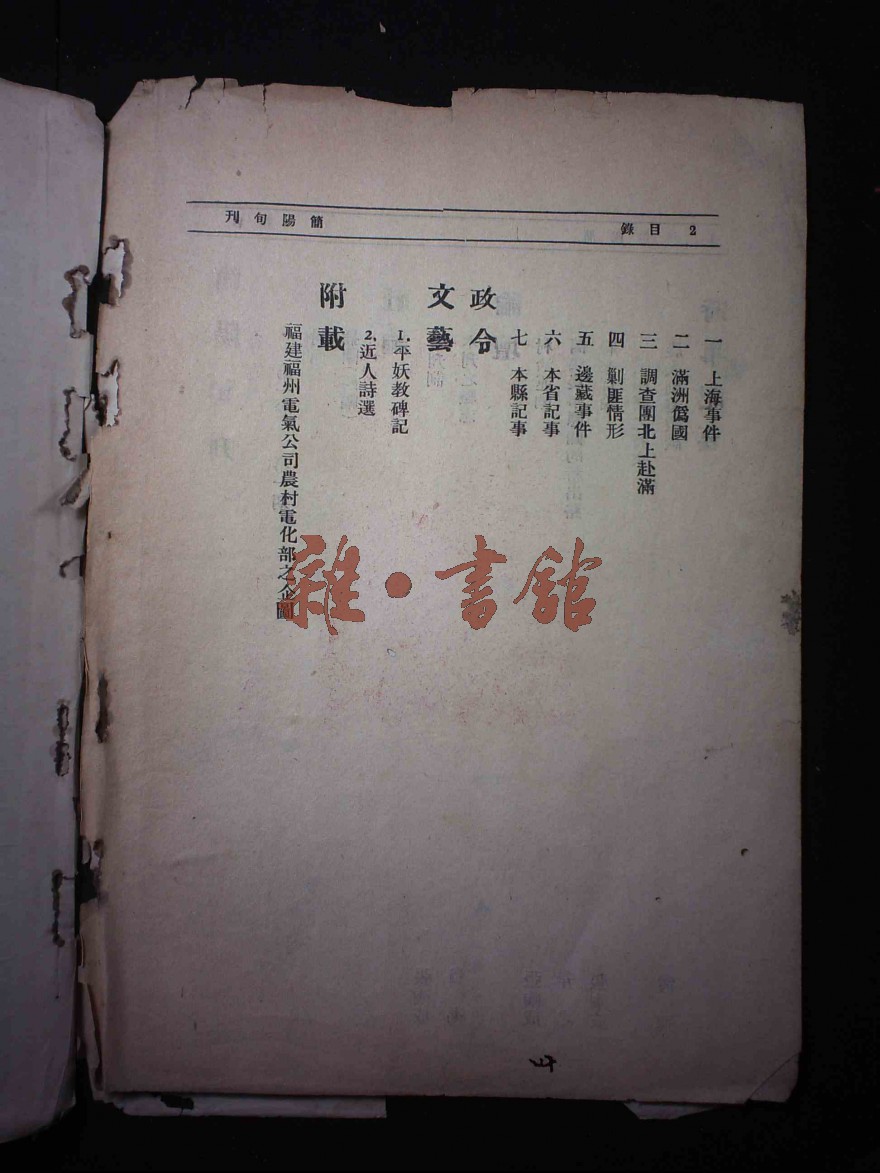 2 目錄
簡陽旬刊
一 上海事件
二 滿洲僞國
三 調查團北上赴滿
四 剿匪情形
五 邊藏事件
六 本省記事
七 本縣記事
政令
文藝
1.平妖教碑記
2.近人詩選
附載
福建福州電氣公司農村電化部之企圖
雜·書館